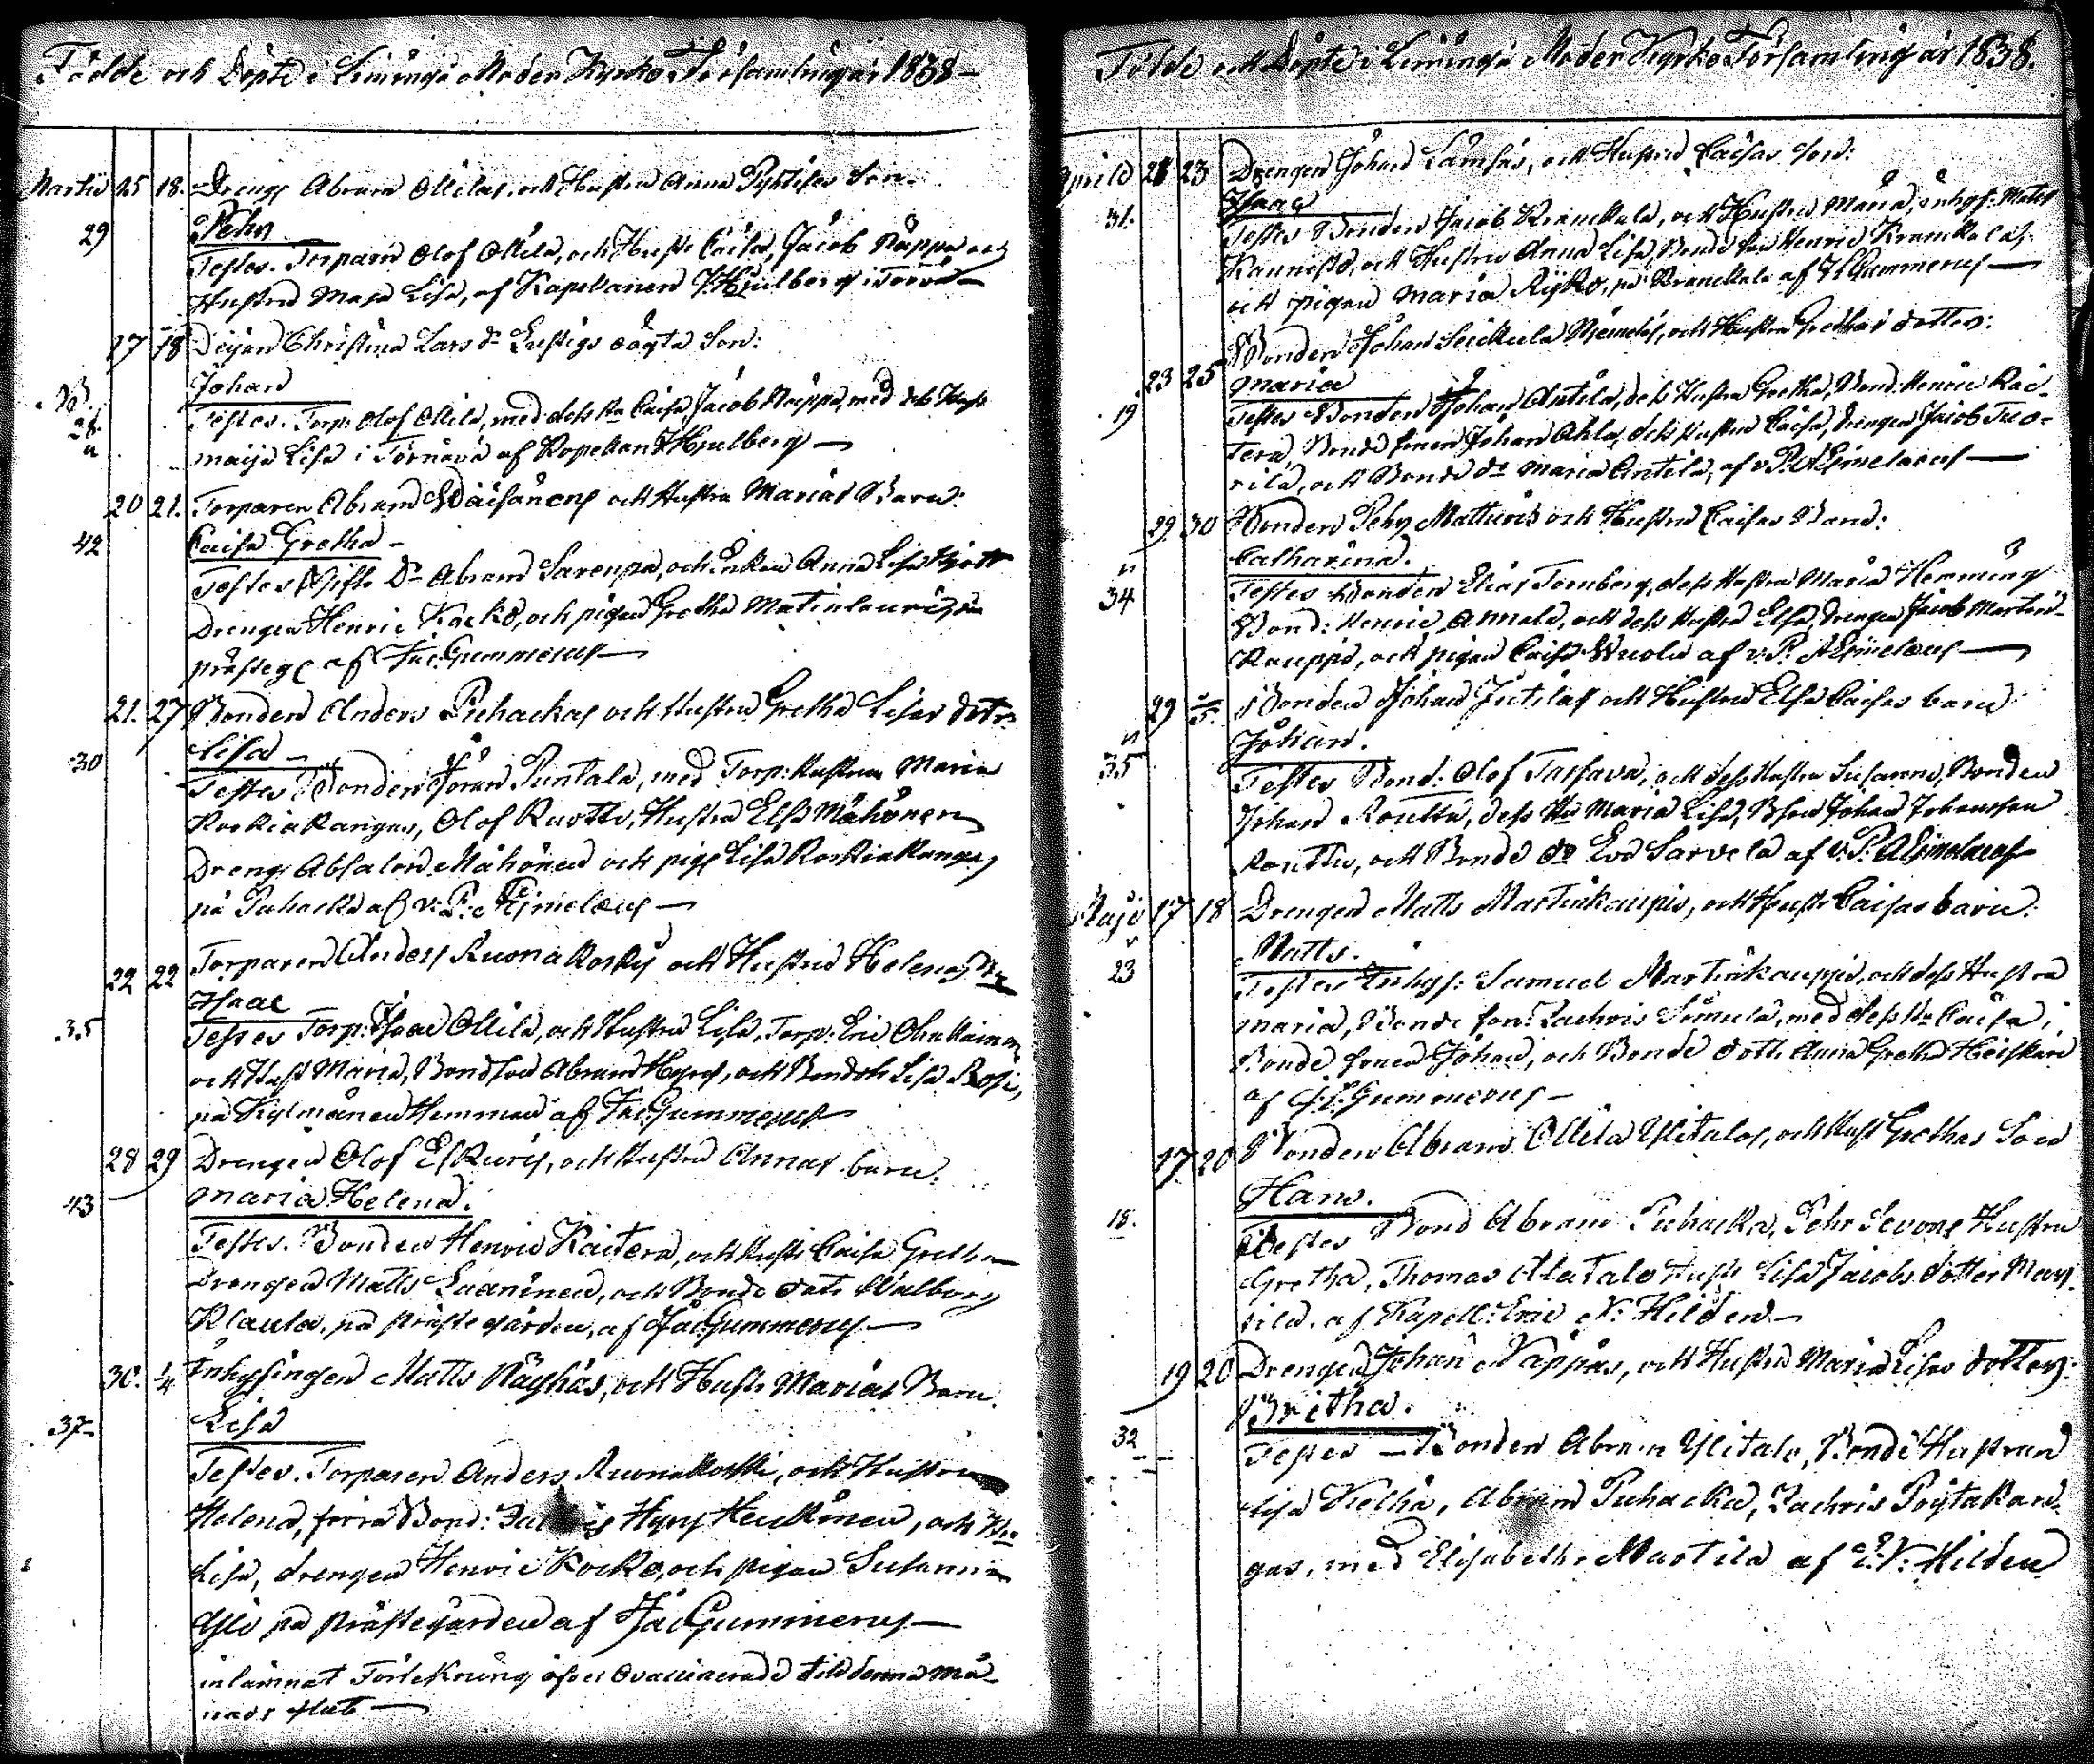 Födde och Döpte i Limingo Moder Kyrko Församling år 1838
Martii 15 18. Drengs Abram Ollilas och Hustru Anna Son
29 Pehr
Testes. Torparn Olof Ollila, och Hust: Caisa, Jacob Näppä och
Hustru Maja Lisa, af Kapellanen Hjulberg i
17 18 Pigan Christina Lars dr Lustigs oägta Son:
Johan
Testes. Torp: Olof Ollila, med dess Hu Caisa Jacob Näppä, med dess Hust
Maija Lisa i Törnävä af Kapellan Hjulberg
20 21. Torparen Abram Wäisänens och Hustru Marias Barn:
42 Caisa Gretha
Testes Dr Abram Sarenpä, och Enkan Anna Lisa
Drengen Henric Kocko, och pigan Gretha
prästeg af Jac: Gummerus
21. 27 Bonden Anders Puhackas och Hustru Gretha Lisas dotr:
30 Lisa
Testes Bonden Göran Puntala, med Torp: Hustrun Maria
Koskiakangas, Olof Ruotts, Hustru Elsa Mähönen
Dreng: Absalon Mähönen och pig: Lisa Koskiakangas
på Puhacka af v: P: Ajmelæus
22 22 Torparen Anders Ruonakoskis och Hustru Helenas
35 Isaac
Testes Torp: Isaac Ollila, och Hustru Lisa, Torp: Eric
och Hust Maria, Bondson Abram Hyrys, och Bondotr Lisa
på Kylmänen Hemman af Jac: Gummerus
28 29 Drengen Olof Eskuris, och Hustru Annas barn:
43 Maria Helena.
Testes. Bonden Henric Kaitera, och Hust: Caisa Gretha
Drengen Matts Laaninen, och Bonde dotr Walborg
Klaula, på Prästegården, af Jac: Gummerus
30. 1/4 Inhysingen Matts Räyhäs, och Hustr Marias Barn
37 Lisa
Testes. Torparen Anders Ruonakoski, och Hustru
Helena, förra Bond: Hyry Heickinen, och Hu
Lisa, drengen Henric Kocko, och pigan Susanna
Yli på Prästegården af Jac Gummerus
inlämnat Förtekning öfver Ovaccinerade till denna Må-
nads slut
Födde och Döpte i Limingo Moder Kyrko Församling år 1838.
Aprill 21 23 Drengen Johan Lämsäs, och Hustru Caisas Son:
31. Isaac
Testes Bonden Jacob Kranckala, och Hustru Maria, inhys: Matts
Kannisto, och Hustru Anna Lisa, Bonde son Henric Kranckala
och pigan Maria Ryko, på Kranckala af Gummerus
23 25 Bonden Johan Seickula Niemelas, och Hustru Grethas dotter:
Maria
19 Testes Bonden Johan Antila, dess Hustru Gretha, Bond: Henric Kai-
tera, Bonde sonen Johan Ahla, dess Hustru Caisa, drengen Jacob Tuo-
rila, och Bonde dr Maria Antila, af v: P. Ajmelæus
29 30 Bonden Pehr Matturis och Hustru Caisas Barn:
Catharina.
34 Testes Bonden Elias Tornberg, dess Hustru Maria Hemming
Bond: Henric Annala, och dess Hustru Elsa, drengen Jacob Martin-
Kauppi, och pigan Caisa Wuolu af v: P. Ajmelæus
29 Bonden Johan Jutilas och Hustru Elsa Caisas barn
Johan.
35 Testes Bond: Olof Tassava, och dess Hustru Susanna, Bonden
Johan Routtu, dess Hu Maria Lisa, Johan Johansson
Routtu, och Bonde dr Eva Sarvela af v: P: Ajmelæus
Maji 17 18 Drengen Matts Martinkaupis, och Hustr Caisas barn:
Matts.
23 Testes Inhys: Samuel Martinkauppi, och dess Hustru
Maria, Bonde son: Zachris Simula, med dess Hu Caisa,
Bonde sonen Johan, och Bonde dottr Anna Greta Heiskari
af Gummerus
17. 20 Bonden Abram Ollila Ylitalos, och Hust Grethas Son
Hans.
18. Testes Bond Abram Puhacka, Pehr Sevons Hustru
Gretha, Thomas Alatalo Hust Lisa Jacobs dotter
af Kapell: Eric N: Hildén
19 20 Drengen Johan Näppäs, och Hustru Maria Lisas dotter:
Britha.
32 Testes Bonden Abram Ylitalo, Bonde Hustrun
Lisa Kielhä, Abram Puhacka, Zachris Pöytäkan-
gas, med Elisabeth Martila af E. N: Hildén